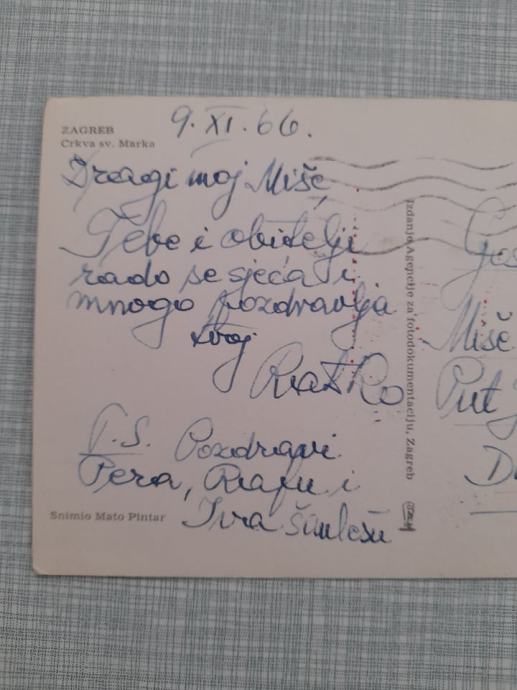 ZAGREB
Crkva sv. Marka
9. XI. 66.
Dragi moj Miše,
Tebe i obitelji
rado se sjeća i
mnogo pozdravlja
tvoj
Ratko
P.S. Pozdravi
Pera, Rafu i
Iva
Snimio Mato Pintar
Izdanje Agencije za fotodokumentaciju, Zagreb
Miše
Put